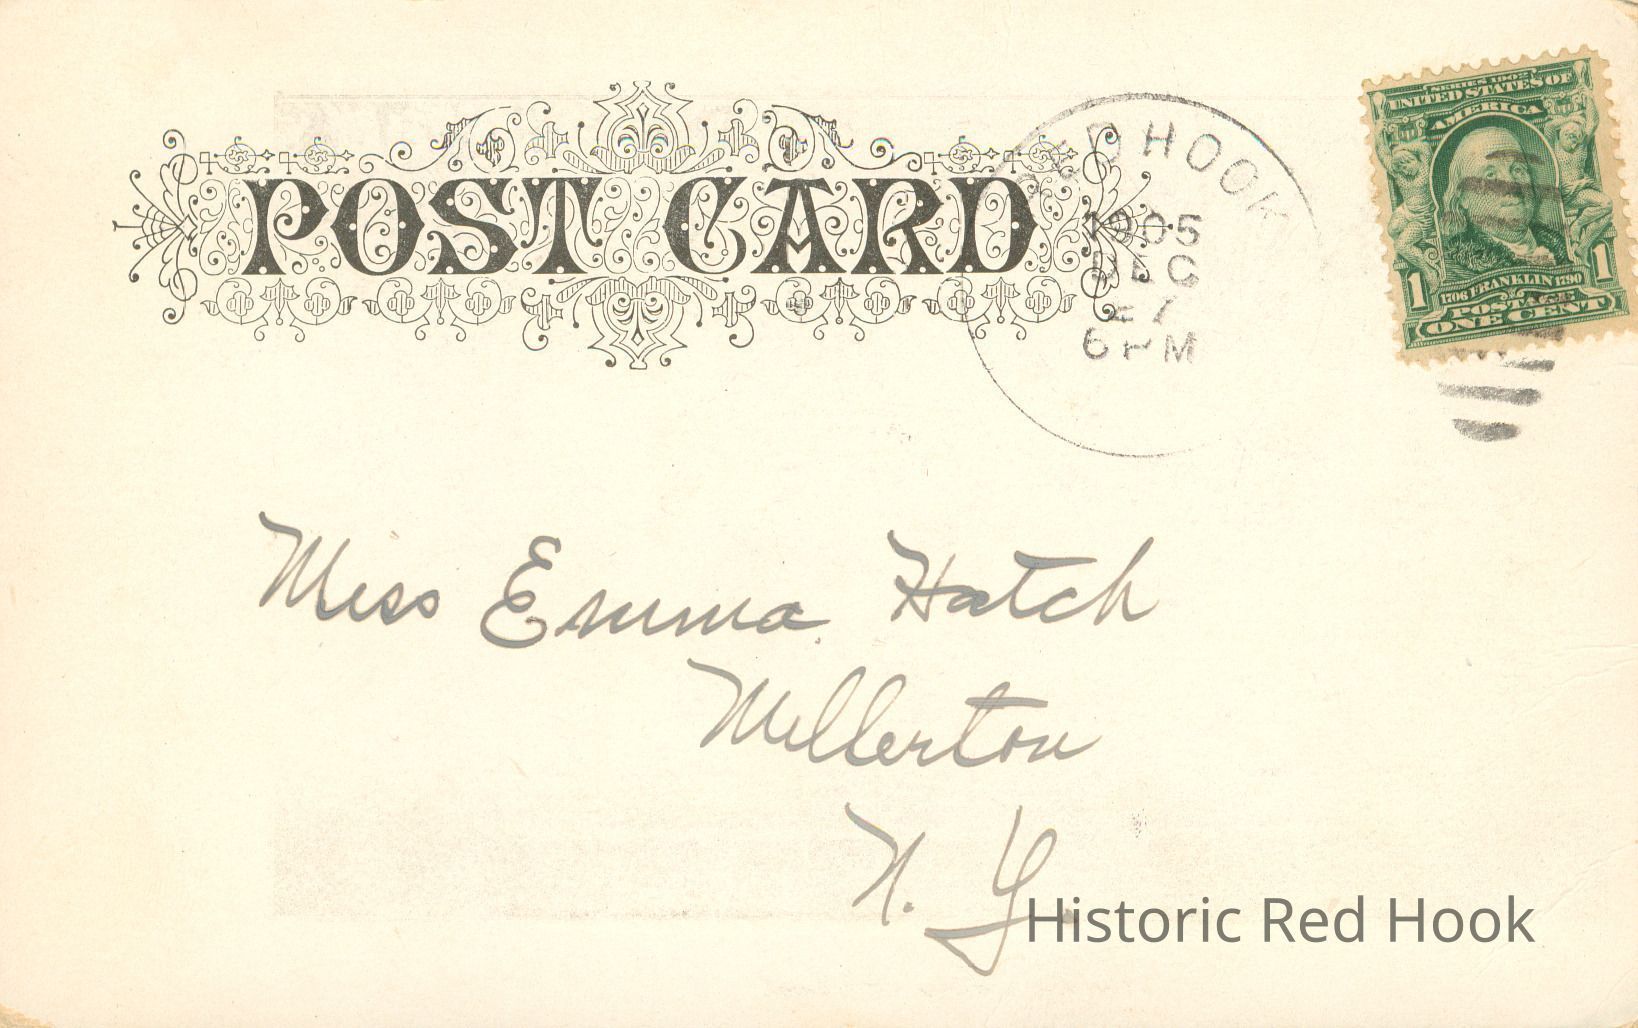 POST CARD
RED HOOK
1905
DEC
27
6 PM
SERIES 1902
UNITED STATES OF
AMERICA
1 1706 FRANKLIN 1790 1
POSTAGE
ONE CENT
Miss Emma Hatch
Millerton
N. Y.
Historic Red Hook